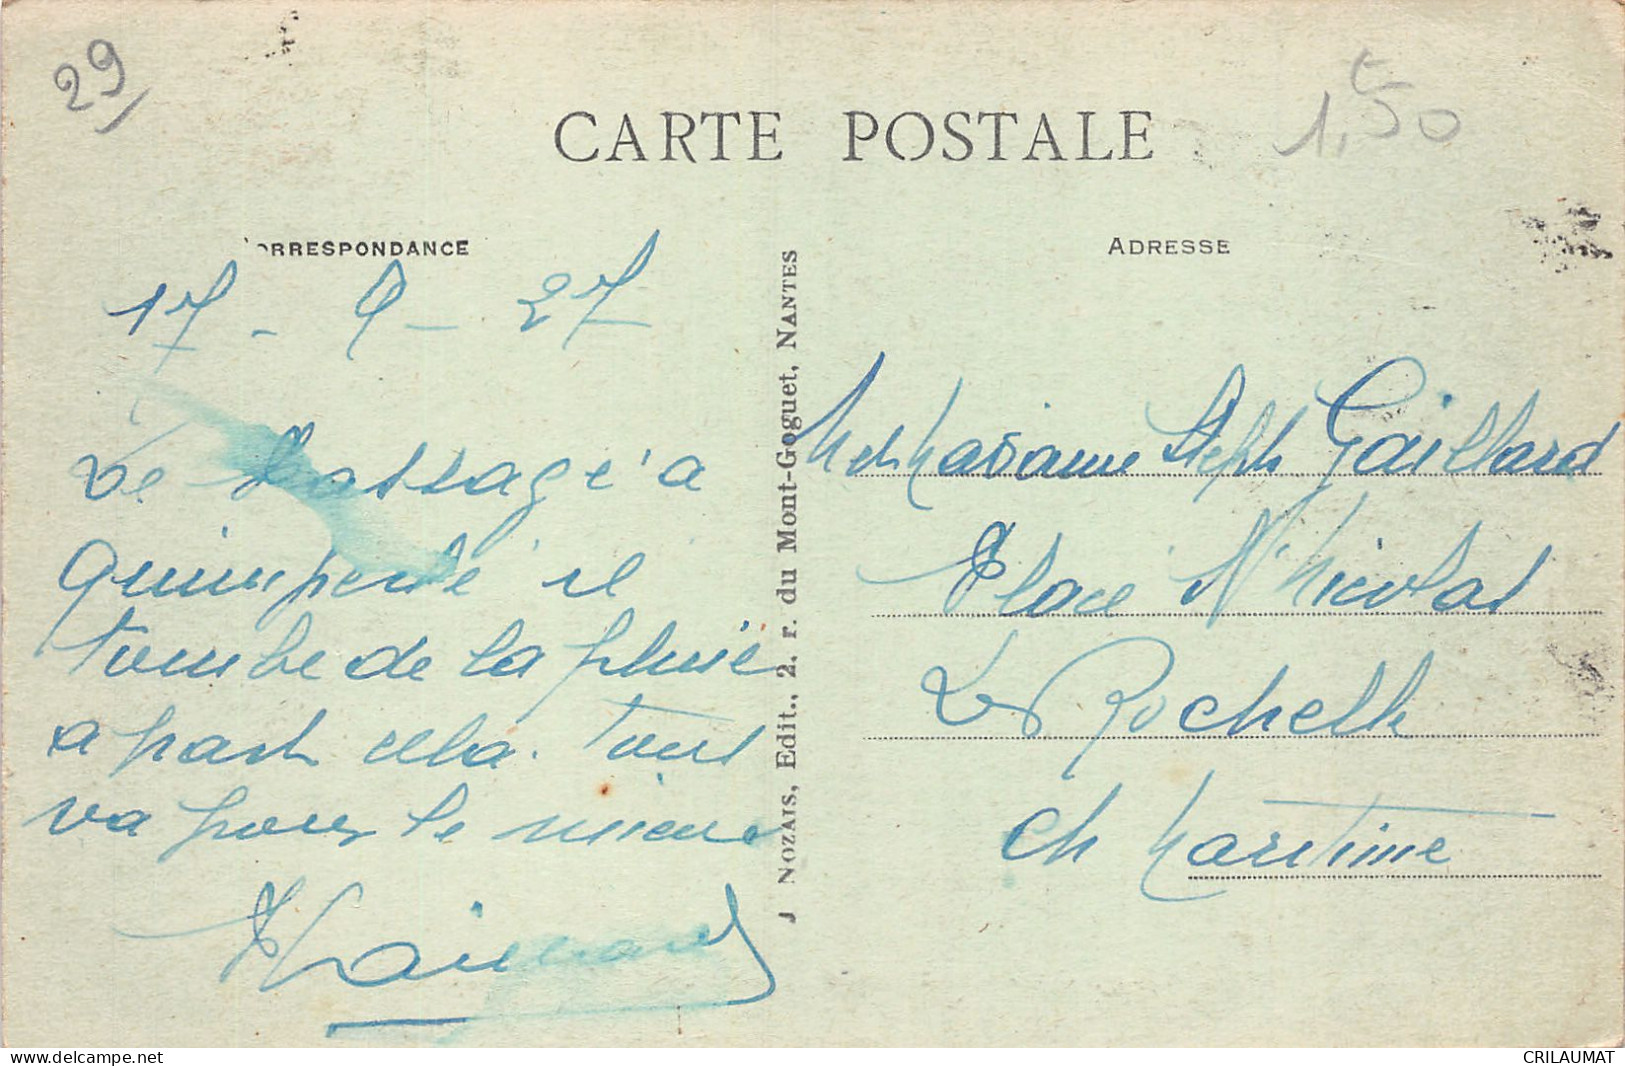 29
1,50
CARTE POSTALE
CORRESPONDANCE
ADRESSE
17 - 9 - 27
De Passage a
Quimperlé il
tombe de la pluie
a part cela tout
va pour le mieux
Gaillard
J NOZAIS, Edit., 2, r. du Mont-Goguet, NANTES
Madame Steph Gaillard
Place Nicolas
La Rochelle
Ch Maritime
www.delcampe.net
CRILAUMAT